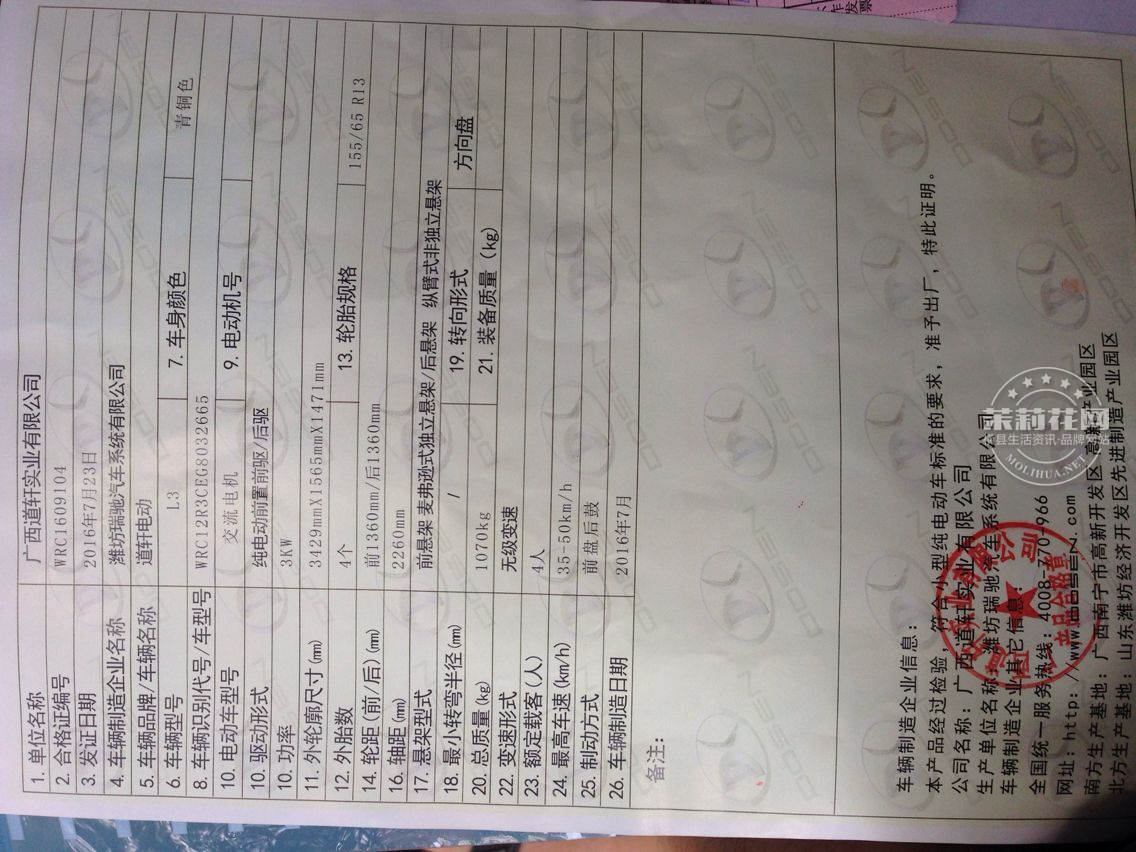 1. 单位名称 广西道轩实业有限公司
2. 合格证编号 WRC1609104
3. 发证日期 2016年7月23日
4. 车辆制造企业名称 潍坊瑞驰汽车系统有限公司
5. 车辆品牌/车辆名称 道轩电动
6. 车辆型号 L3 7. 车身颜色 青铜色
8. 车辆识别代号/车型号 WRC12R3CEG8032665
10. 电动车型号 交流电机 9. 电动机号
10. 驱动形式 纯电动前置前驱/后驱
10. 功率 3KW
11. 外轮廓尺寸(mm) 3429mmX1565mmX1471mm
12. 外胎数 4个 13. 轮胎规格 155/65 R13
14. 轮距(前/后)(mm) 前1360mm/后1360mm
16. 轴距(mm) 2260mm
17. 悬架型式 前悬架 麦弗逊式独立悬架/后悬架 纵臂式非独立悬架
18. 最小转弯半径(mm) / 19. 转向形式 方向盘
20. 总质量(kg) 1070kg 21. 装备质量(kg)
22. 变速形式 无级变速
23. 额定载客(人) 4人
24. 最高车速(km/h) 35-50km/h
25. 制动方式 前盘后鼓
26. 车辆制造日期 2016年7月
备注：
车辆制造企业信息：
本产品经过检验，符合小型纯电动车标准的要求，准予出厂，特此证明。
公司名称：广西道轩实业有限公司
生产单位名称：潍坊瑞驰汽车系统有限公司
车辆制造企业其它信息：
全国统一服务热线：4008-770-966
网址：http://www.
南方生产基地：广西南宁市高新开发区高新产业园区
北方生产基地：山东潍坊经济开发区先进制造产业园区
产品合格章
茉莉花网
生活资讯·品牌
MOLIHUA.NET
NSSOD
发票